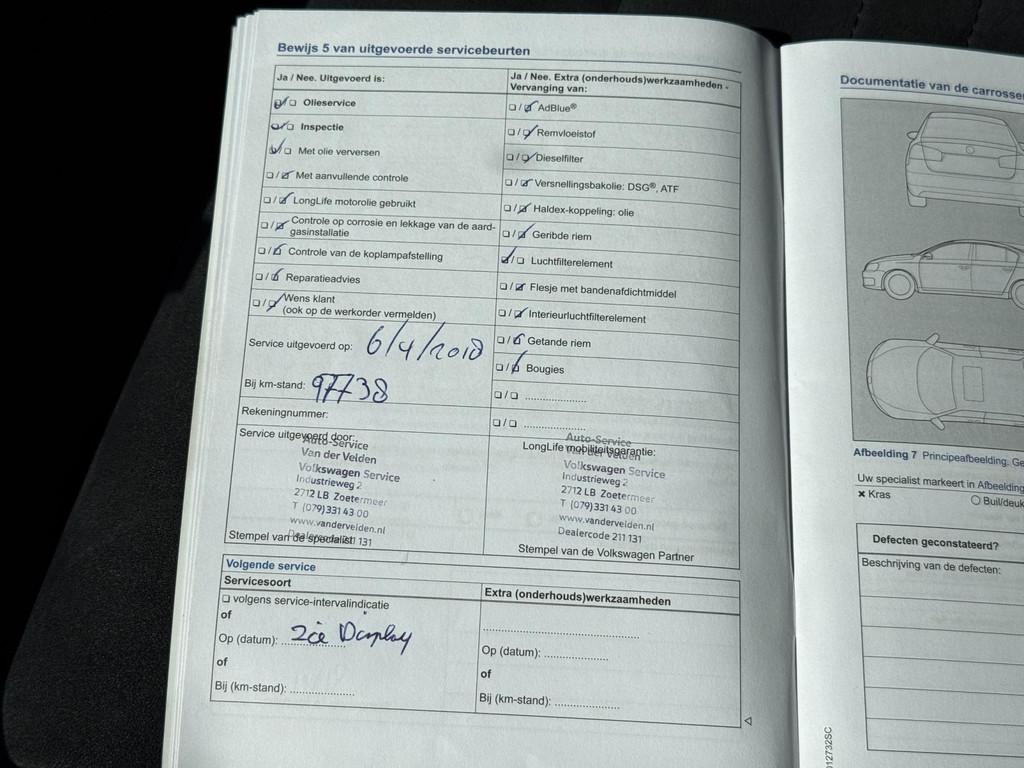 Bewijs 5 van uitgevoerde servicebeurten
Ja / Nee. Uitgevoerd is:
Olieservice
Inspectie
Met olie verversen
Met aanvullende controle
LongLife motorolie gebruikt
Controle op corrosie en lekkage van de aard-
gasinstallatie
Controle van de koplampafstelling
Reparatieadvies
Wens klant
(ook op de werkorder vermelden)
Service uitgevoerd op: 6/4/2018
Bij km-stand: 97738
Rekeningnummer:
Service uitgevoerd door:
Auto-Service
Van der Velden
Volkswagen Service
Industrieweg 2
2712 LB Zoetermeer
T (079) 331 43 00
www.vandervelden.nl
Dealercode 211 131
Stempel van de specialist
Ja / Nee. Extra (onderhouds)werkzaamheden -
Vervanging van:
AdBlue®
Remvloeistof
Dieselfilter
Versnellingsbakolie: DSG®, ATF
Haldex-koppeling: olie
Geribde riem
Luchtfilterelement
Flesje met bandenafdichtmiddel
Interieurluchtfilterelement
Getande riem
Bougies
LongLife mobiliteitsgarantie:
Auto-Service
Van der Velden
Volkswagen Service
Industrieweg 2
2712 LB Zoetermeer
T (079) 331 43 00
www.vandervelden.nl
Dealercode 211 131
Stempel van de Volkswagen Partner
Volgende service
Servicesoort
volgens service-intervalindicatie
of
Op (datum): zie Display
of
Bij (km-stand):
Extra (onderhouds)werkzaamheden
Op (datum):
of
Bij (km-stand):
Documentatie van de carrosse
Afbeelding 7 Principeafbeelding. Ge
Uw specialist markeert in Afbeelding
x Kras
Buil/deuk
Defecten geconstateerd?
Beschrijving van de defecten:
012732SC